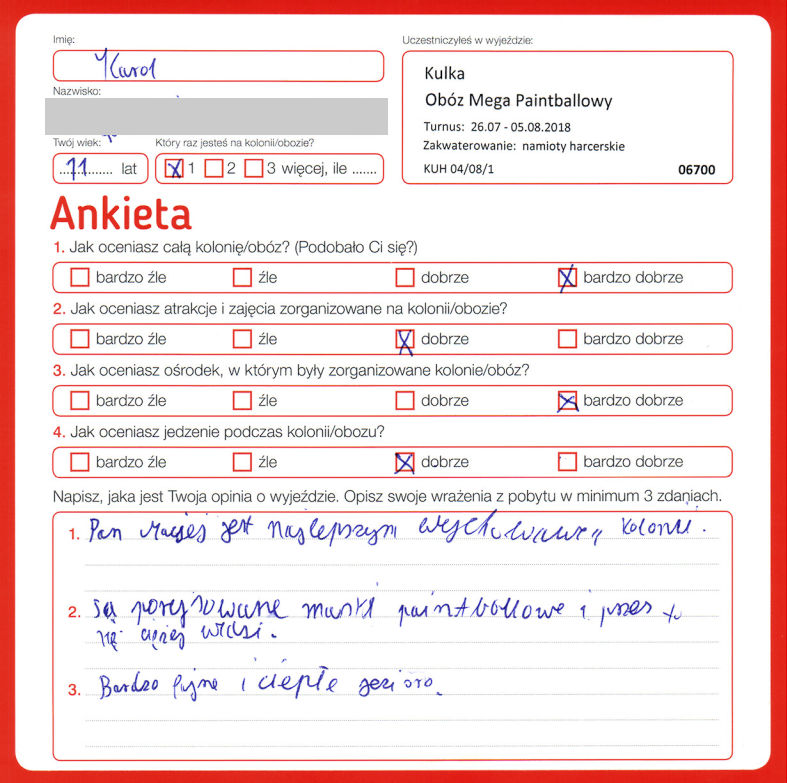 Imię:
Karol
Nazwisko:
Twój wiek:
11 lat
Który raz jesteś na kolonii/obozie?
X 1 2 3 więcej, ile .......
Uczestniczyłeś w wyjeździe:
Kulka
Obóz Mega Paintballowy
Turnus: 26.07 - 05.08.2018
Zakwaterowanie: namioty harcerskie
KUH 04/08/1 06700
Ankieta
1. Jak oceniasz całą kolonię/obóz? (Podobało Ci się?)
bardzo źle źle dobrze X bardzo dobrze
2. Jak oceniasz atrakcje i zajęcia zorganizowane na kolonii/obozie?
bardzo źle źle X dobrze bardzo dobrze
3. Jak oceniasz ośrodek, w którym były zorganizowane kolonie/obóz?
bardzo źle źle dobrze X bardzo dobrze
4. Jak oceniasz jedzenie podczas kolonii/obozu?
bardzo źle źle X dobrze bardzo dobrze
Napisz, jaka jest Twoja opinia o wyjeździe. Opisz swoje wrażenia z pobytu w minimum 3 zdaniach.
1. Pan Maciej jest najlepszym wychowawcą kolonii.
2. Są porysowane maski paintbollowe i przes to
się ciężej widzi.
3. Bardzo fajne i ciepłe jezioro.